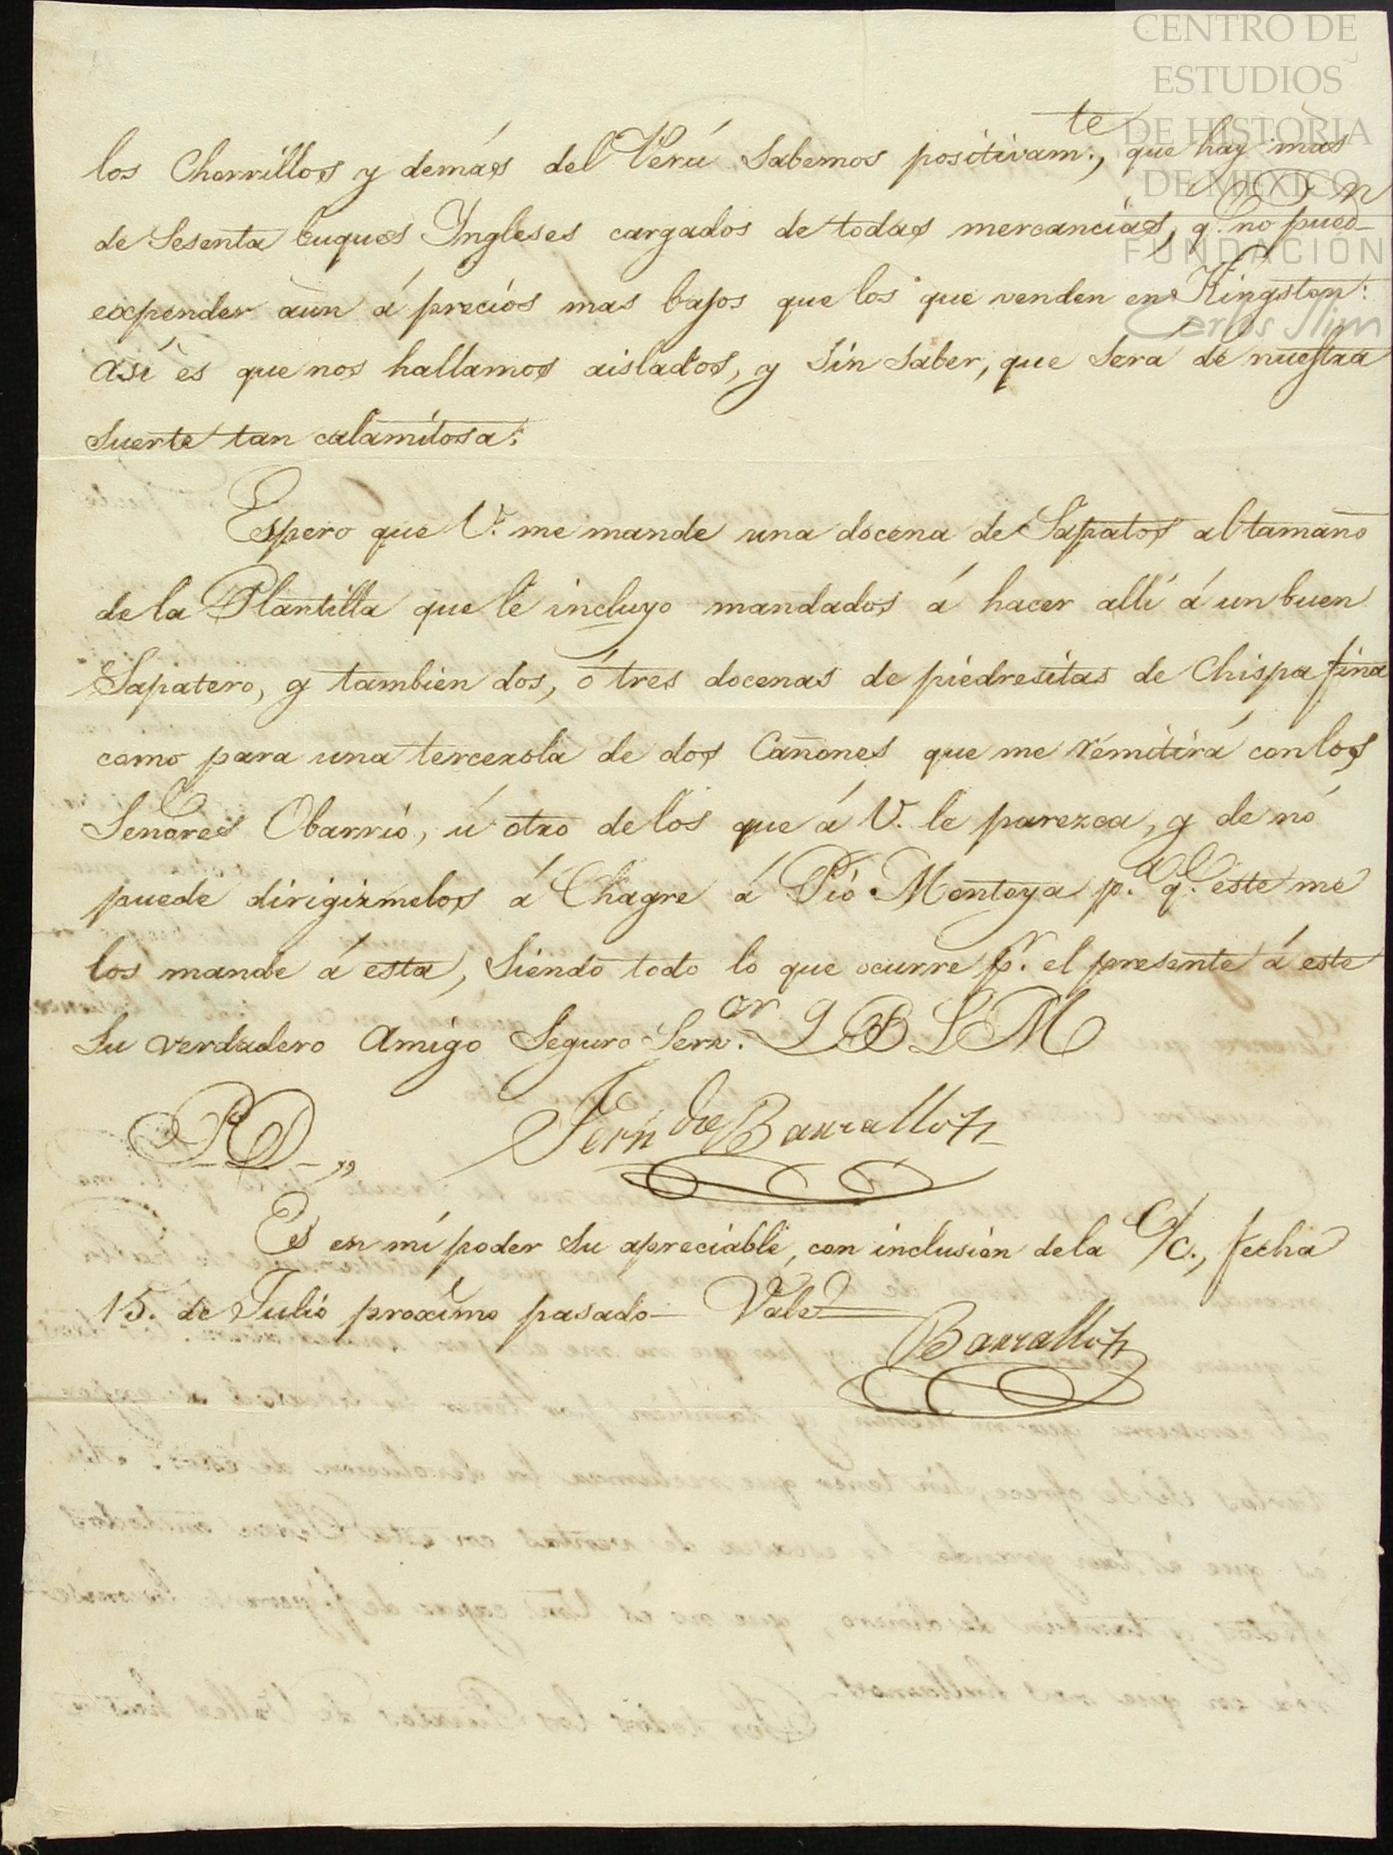 CENTRO DE
ESTUDIOS
DE HISTORIA
DE MÉXICO
FUNDACIÓN
Carlos Slim
los Chorrillos y demás del Perú Sabemos positivam.te, que hay mas
de Sesenta buques Yngleses cargados de todas mercancias, q.e no pued.n
expender aun á precios mas bajos que los que venden en Kingston:
asi es que nos hallamos aislados, y sin saber, que será de nuestra
suerte tan calamitosa.
Espero que V. me mande una docena de Sapatos al tamaño
de la Plantilla que le incluyo mandados á hacer allí á un buen
Sapatero, y tambien dos, ó tres docenas de piedresitas de Chispa fina
como para una tercerola de dos Cañones que me remitirá con los
Señores Obarrio, ú otro de los que á V. le parezca, y de nó
puede dirigirmelos á Chagre á Pio Montoya p.a q.e este me
los mande á esta, Siendo todo lo que ocurre p.r el presente á este
Su verdadero Amigo Seguro Serv.or Q B S M
Fern.do Barrallon
P.D.,,
Es en mi poder su apreciable, con inclusion de la C/c., fecha
15. de Julio proximo pasado Vale
Barrallon